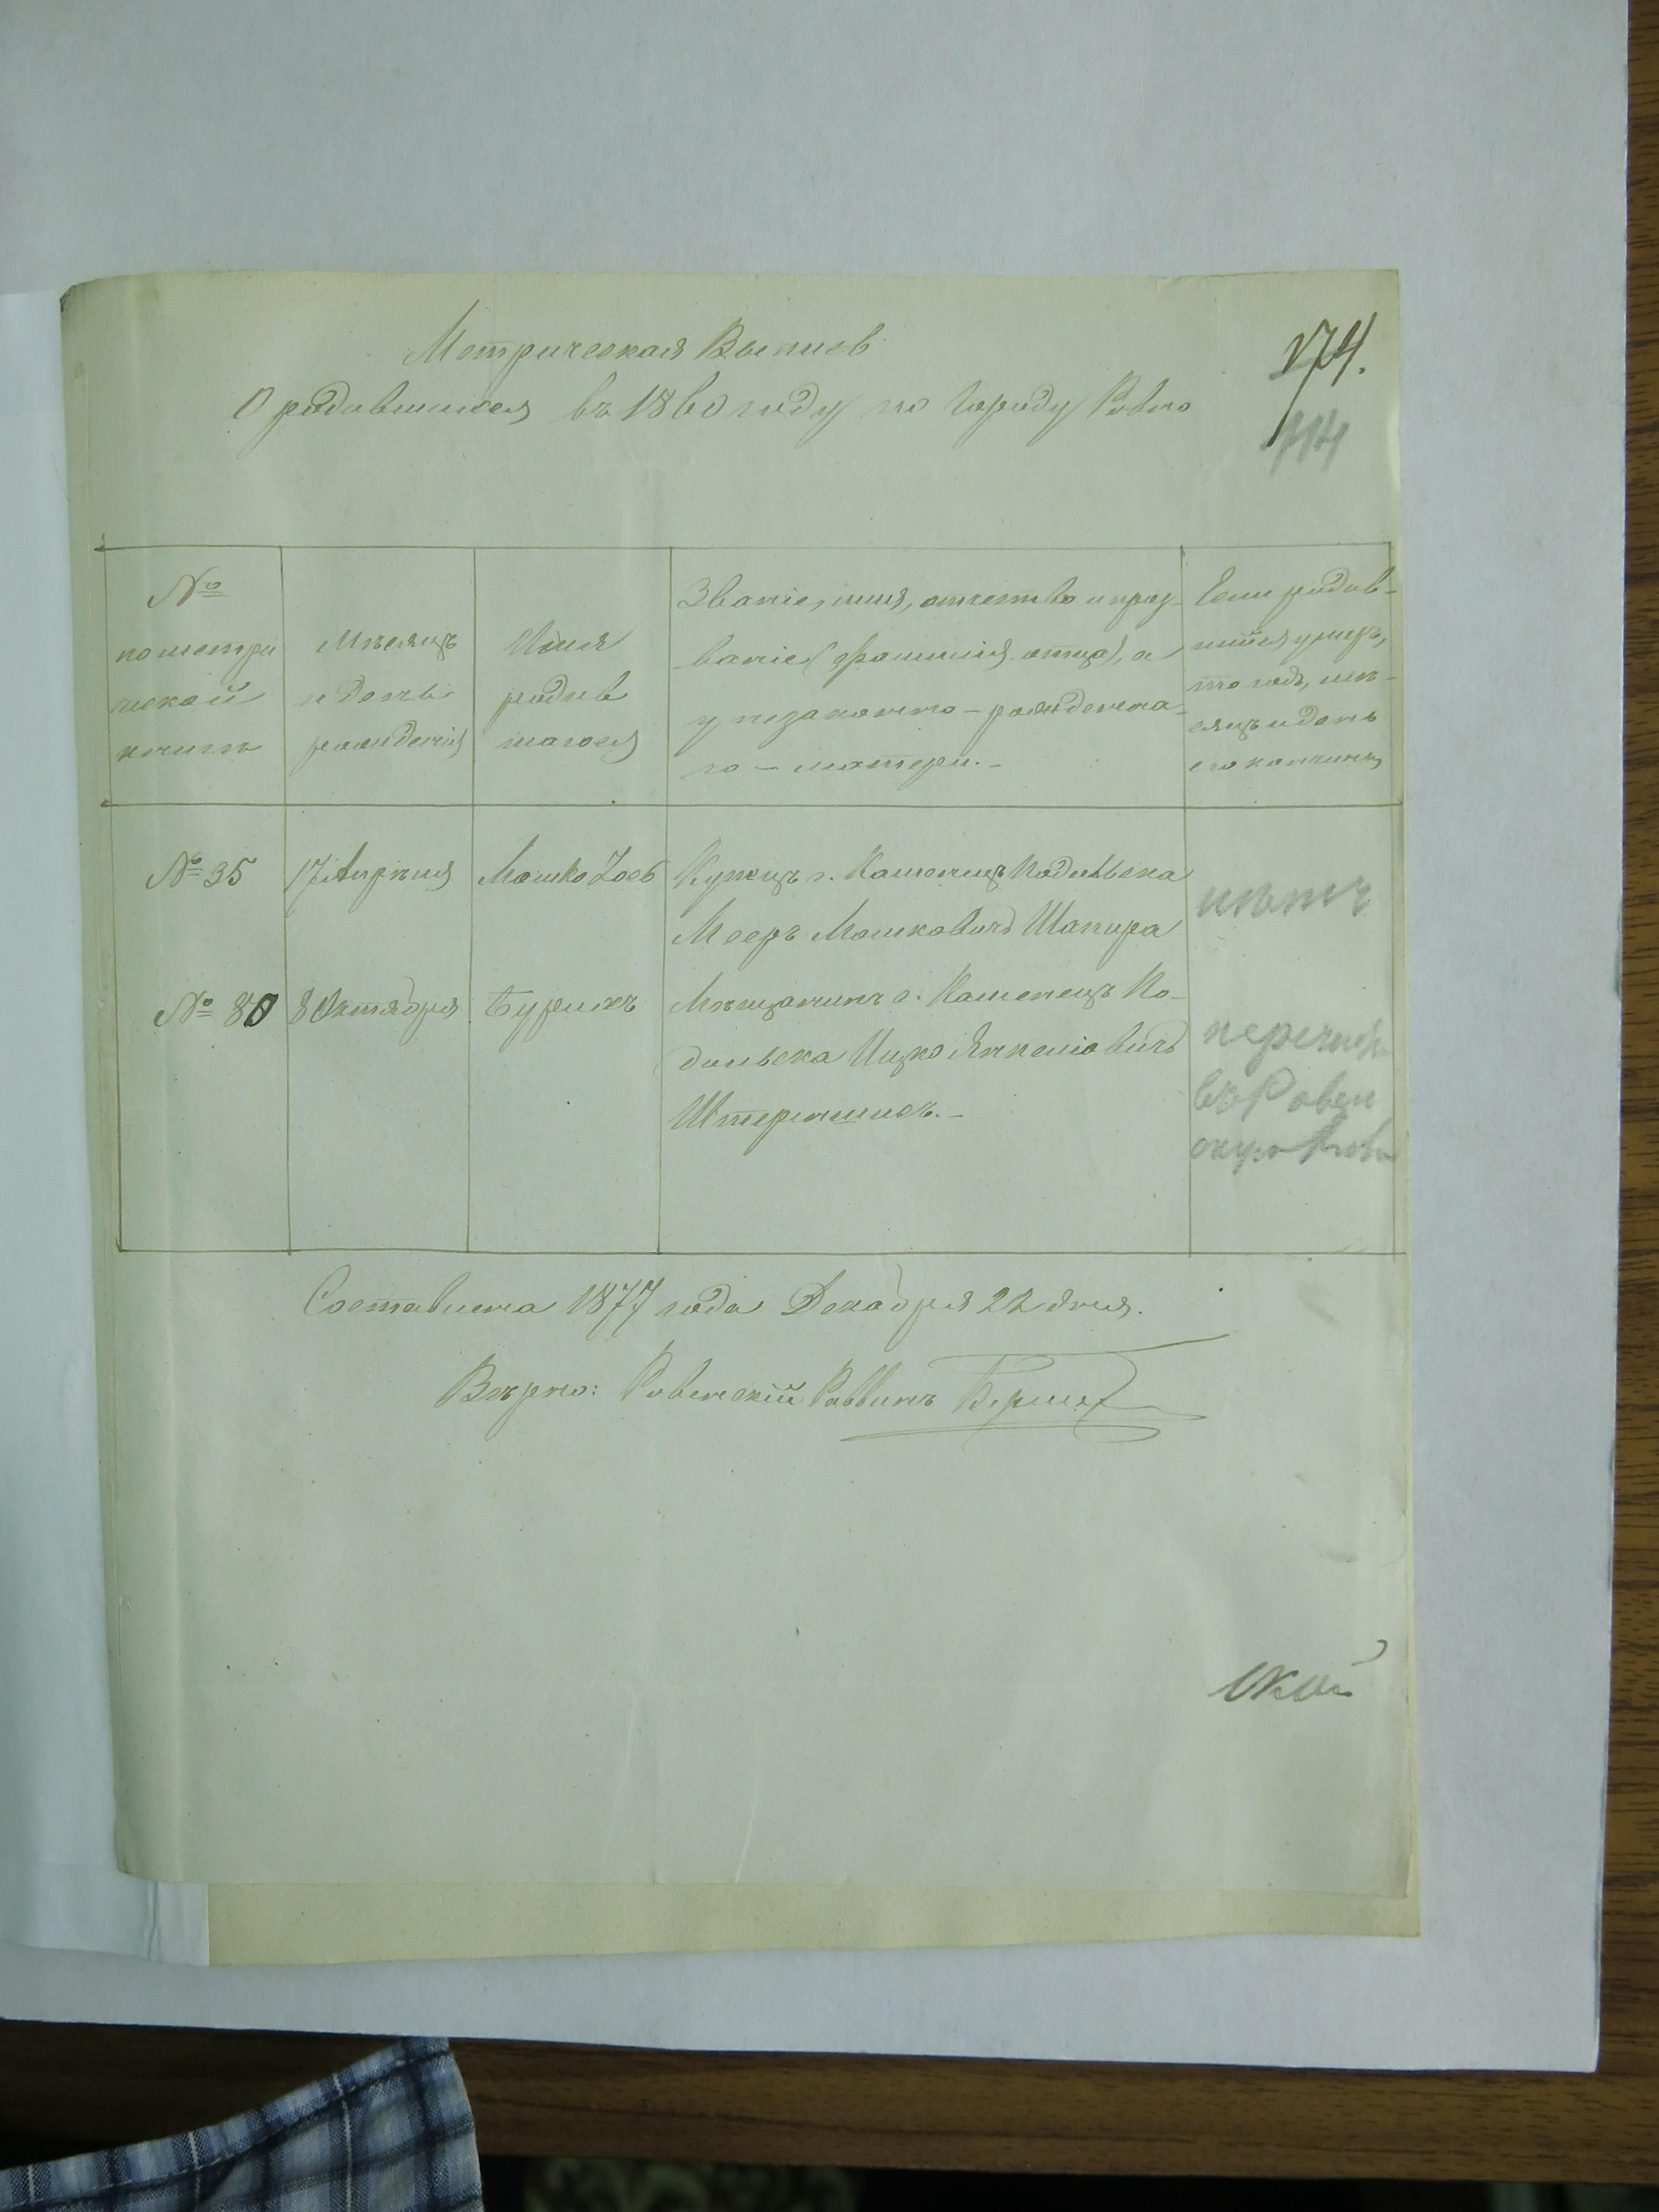 Метрическая Выпись
174.
О родившихся въ 1860 году по городу Ровно
№
по метри
ческой
книгѣ
Мѣсяцъ
и день
рожденія
Имя
родив
шагося
Званіе, имя, отчество и проз-
ваніе (фамилія отца), а
у незаконно-рожденна-
го - матери.-
Если родив-
шійся умеръ,
то годъ, мѣ-
сяцъ и день
его кончины
№ 35
17 Апрѣля
Мошко Зосъ
Купецъ г. Каменецъ Подольска
Мееръ Мошковичъ Шапира
нѣтъ
№ 80
8 Октября
Бурихъ
Мѣщанинъ г. Каменецъ По-
дольска Ицко Янкеліовичъ
Штерншисъ.-
въ Ровен
Составлена 1877 года Декабря 22 дня.
Вѣрно: Ровенскій Раввинъ
ской